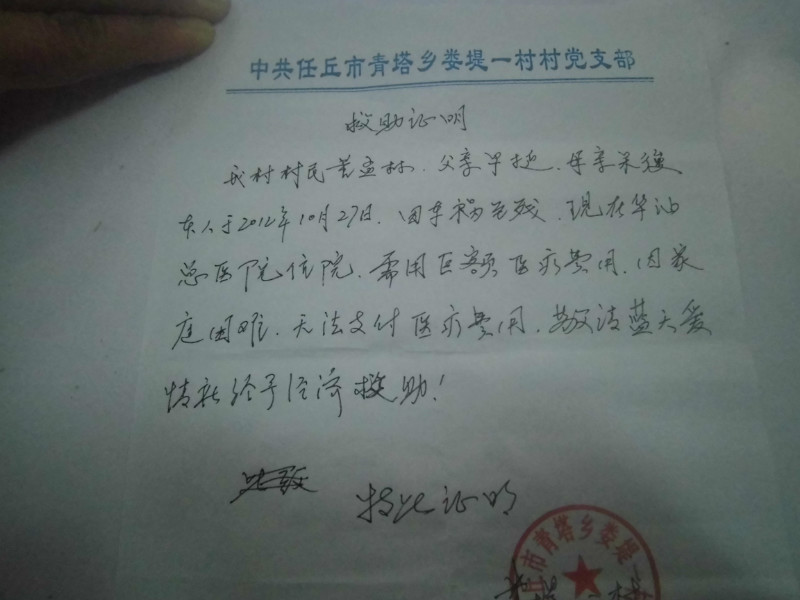 中共任丘市青塔乡娄堤一村村党支部
救助证明
我村村民 父亲早 母亲
本人于2012年10月27日.因车祸 残.现在华油
总医院住院.需用巨额医疗费用.因家
庭困难.无法支付医疗费用.敬请蓝天爱
给予经济救助!
此致
特此证明
市青塔乡娄堤一